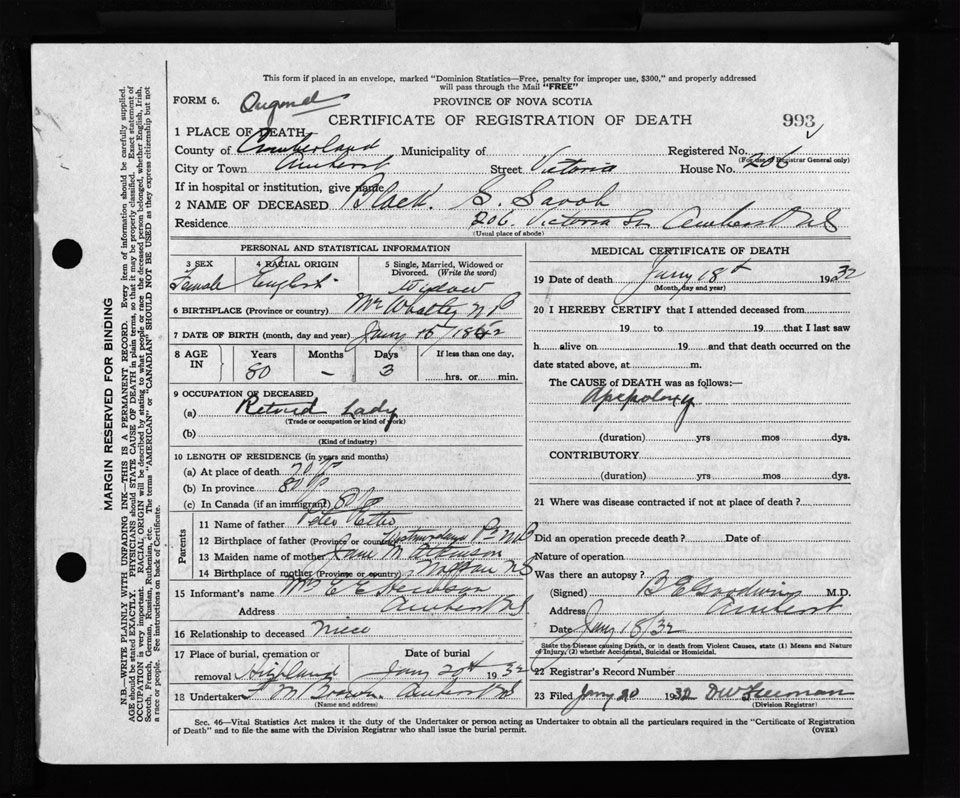 This form if placed in an envelope, marked "Dominion Statistics—Free, penalty for improper use, $300," and properly addressed
will pass through the Mail "FREE"
FORM 6.
PROVINCE OF NOVA SCOTIA
CERTIFICATE OF REGISTRATION OF DEATH
993
1 PLACE OF DEATH
County of Cumberland Municipality of Registered No.
(For use of Registrar General only)
City or Town Amherst Street Victoria House No. 206
If in hospital or institution, give name
2 NAME OF DECEASED Black. S. Sarah
Residence 206 Victoria St Amherst NS
(Usual place of abode)
PERSONAL AND STATISTICAL INFORMATION
3 SEX 4 RACIAL ORIGIN 5 Single, Married, Widowed or
Divorced. (Write the word)
Female English Widow
6 BIRTHPLACE (Province or country)
7 DATE OF BIRTH (month, day and year) Jany 15/
8 AGE IN Years Months Days If less than one day,
80 – 3 hrs. or min.
9 OCCUPATION OF DECEASED
(a) Retired Lady
(Trade or occupation or kind of work)
(b)
(Kind of industry)
10 LENGTH OF RESIDENCE (in years and months)
(a) At place of death 70
(b) In province 80
(c) In Canada (if an immigrant) 80
Parents
11 Name of father Peter Etter
12 Birthplace of father (Province or country) Westmorland
13 Maiden name of mother Jane M Atkinson
14 Birthplace of mother (Province or country) NS
15 Informant's name Mrs E E
Address Amherst NS
16 Relationship to deceased niece
17 Place of burial, cremation or removal Highland Date of burial Jany 1932
18 Undertaker Brown Amherst NS
(Name and address)
MEDICAL CERTIFICATE OF DEATH
19 Date of death Jany 18 1932
(Month, day and year)
20 I HEREBY CERTIFY that I attended deceased from
19 to 19 that I last saw
h alive on 19 and that death occurred on the
date stated above, at m.
The CAUSE of DEATH was as follows:—
Apepoloxy
(duration) yrs mos dys.
CONTRIBUTORY
(duration) yrs mos dys.
21 Where was disease contracted if not at place of death?
Did an operation precede death? Date of
Nature of operation
Was there an autopsy?
(Signed) B E Goodwin M.D.
Address Amherst
Date Jany 18/32
State the Disease causing Death, or in death from Violent Causes, state (1) Means and Nature
of Injury, (2) whether Accidental, Suicidal or Homicidal.
22 Registrar's Record Number
23 Filed Jany 20 1932 Freeman
(Division Registrar)
Sec. 46—Vital Statistics Act makes it the duty of the Undertaker or person acting as Undertaker to obtain all the particulars required in the "Certificate of Registration
of Death" and to file the same with the Division Registrar who shall issue the burial permit.
(OVER)
MARGIN RESERVED FOR BINDING
N.B.—WRITE PLAINLY WITH UNFADING INK—THIS IS A PERMANENT RECORD. Every item of information should be carefully supplied.
AGE should be stated EXACTLY. PHYSICIANS should STATE CAUSE OF DEATH in plain terms, so that it may be properly classified. Exact statement of
OCCUPATION is very important. RACIAL ORIGIN will be described by stating to what people or race the deceased person belonged, whether English, Irish,
Scotch, French, German, Russian, Ruthenian, etc. The terms "AMERICAN" or "CANADIAN" SHOULD NOT BE USED as they express citizenship but not
a race or people. See instructions on back of Certificate.